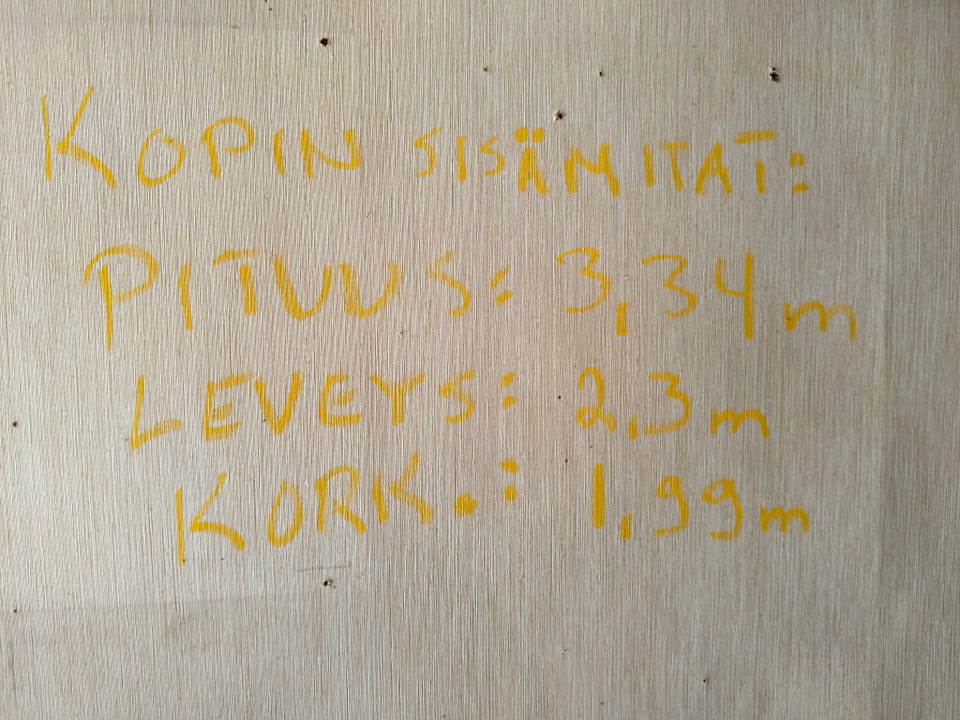 KOPIN SISÄMITAT:
PITUUS: 3,34 m
LEVEYS: 2,3 m
KORK.: 1,99 m